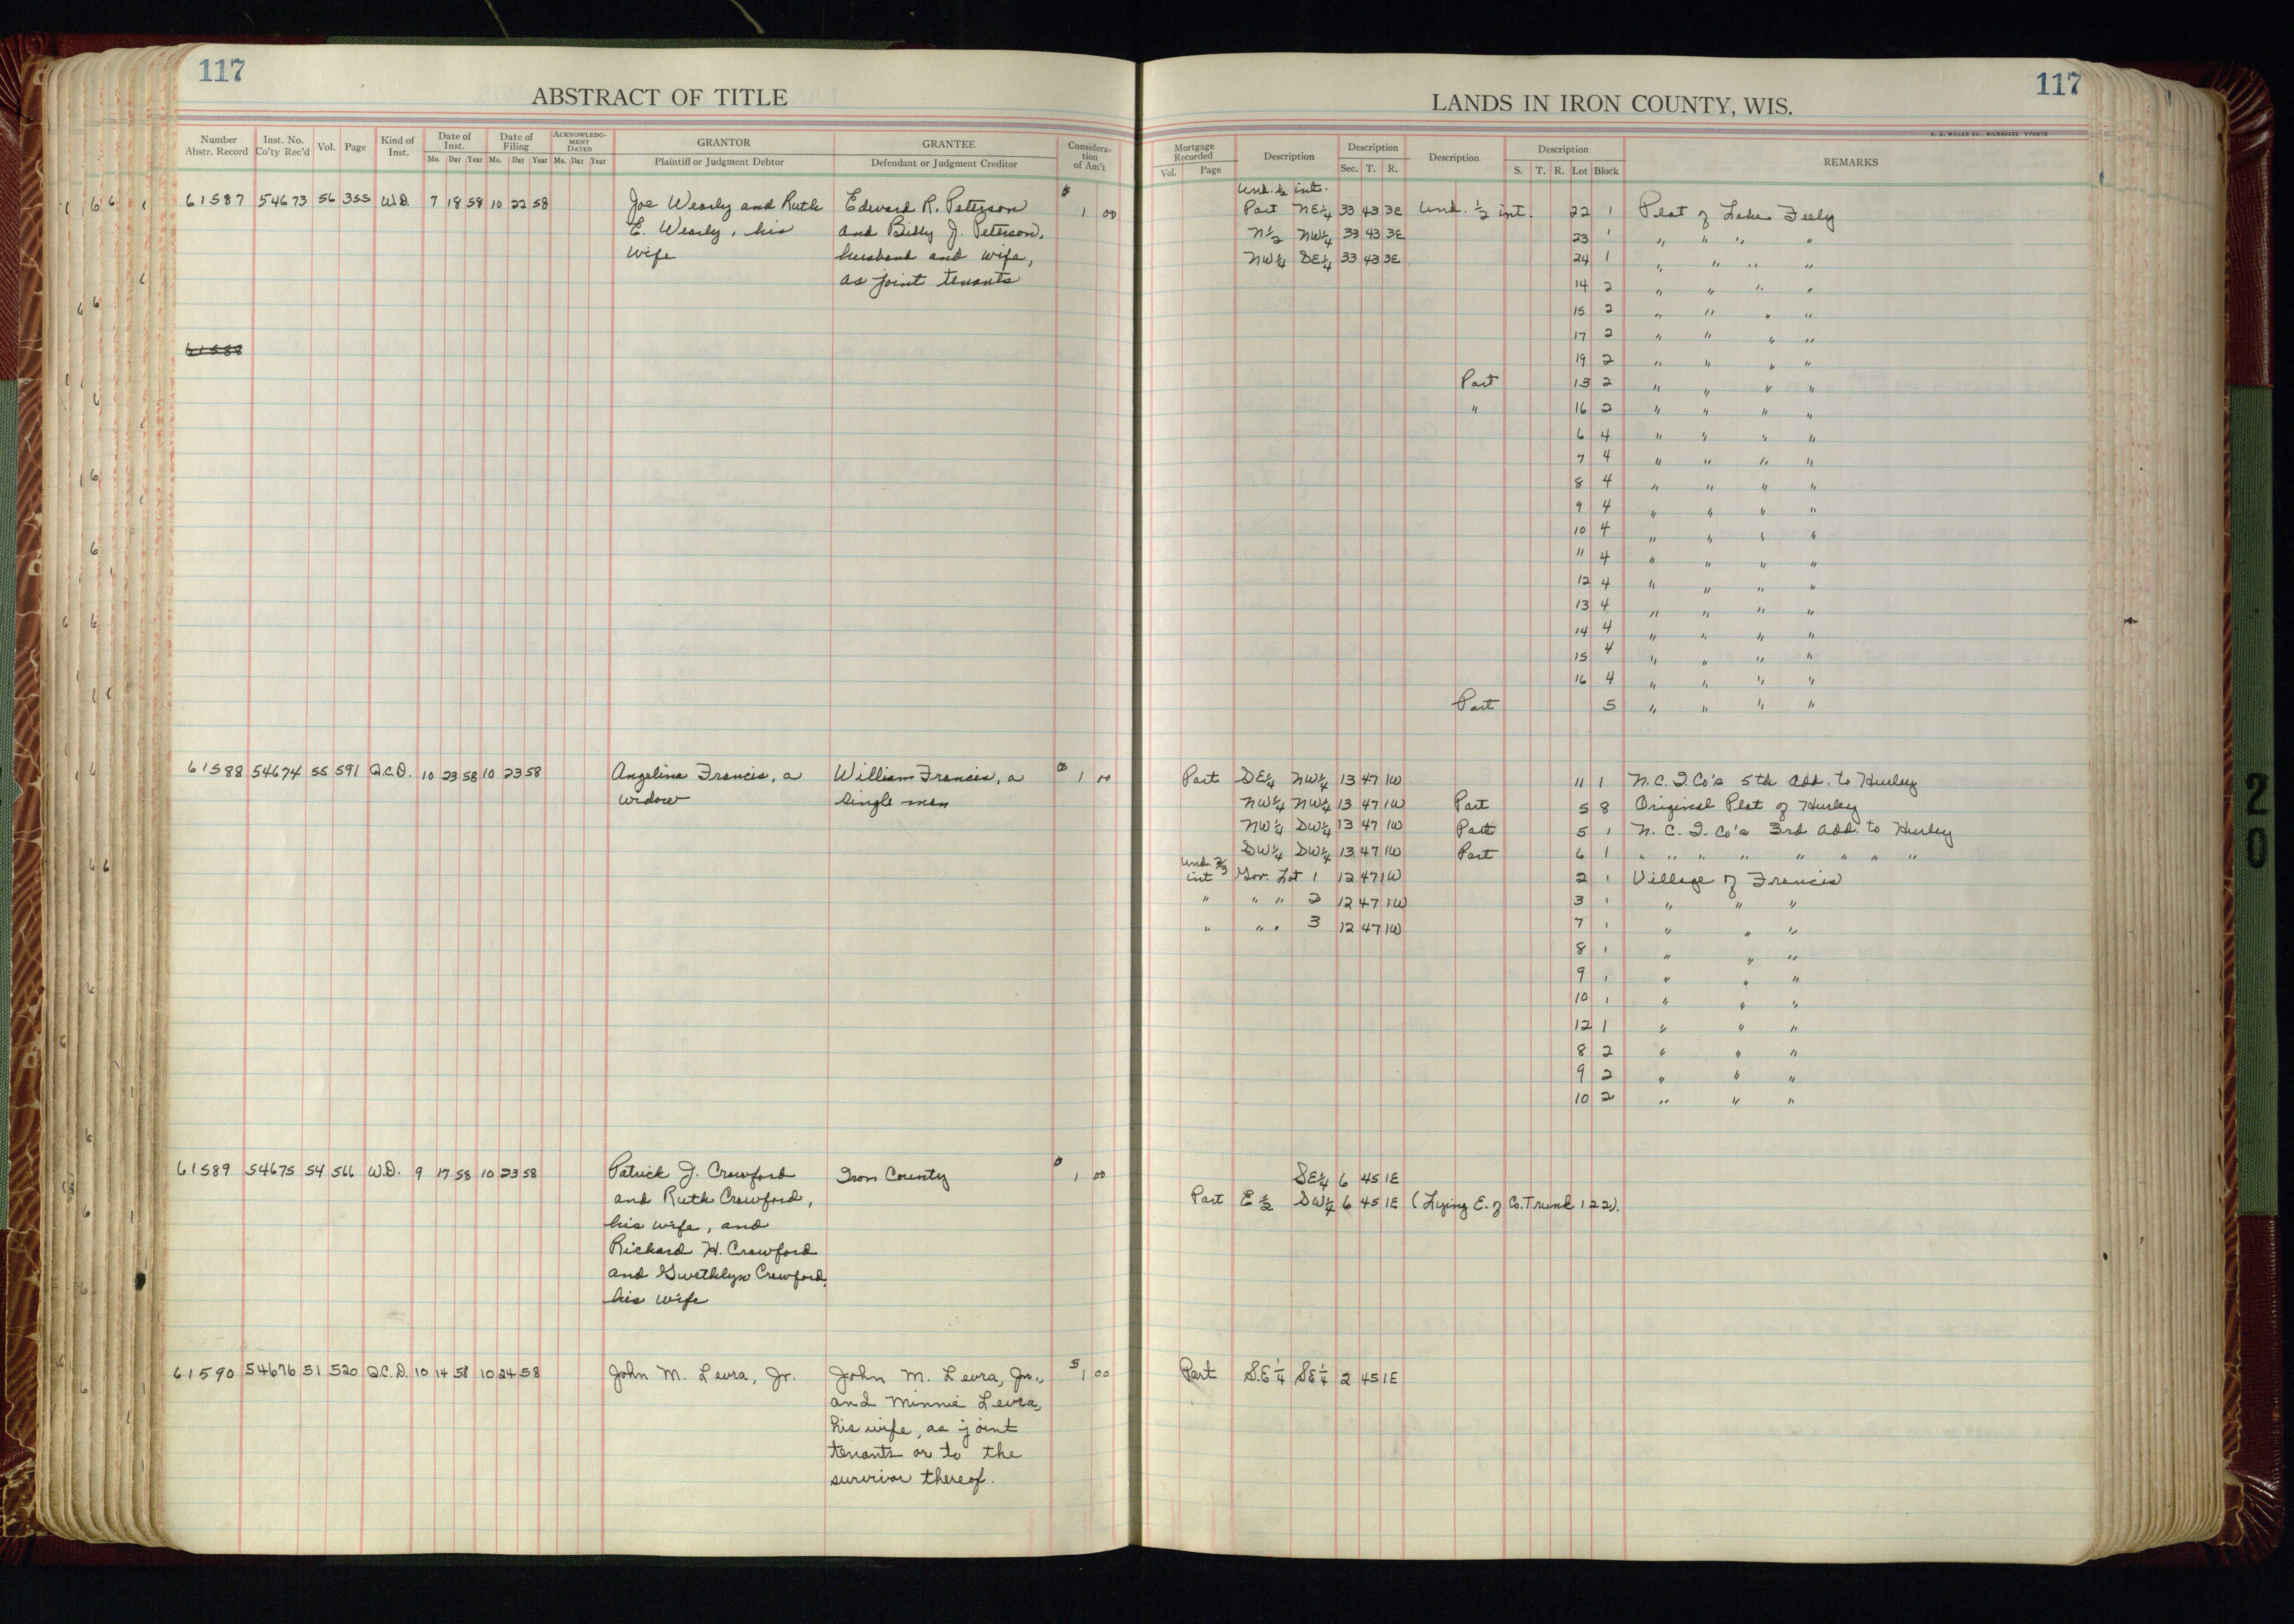 117
ABSTRACT OF TITLE
Number Abstr. Record | Inst. No. Co'ty Rec'd | Vol. | Page | Kind of Inst. | Date of Inst. Mo. Day Year | Date of Filing Mo. Day Year | ACKNOWLEDGMENT DATED Mo. Day Year | GRANTOR Plaintiff or Judgment Debtor | GRANTEE Defendant or Judgment Creditor | Consideration of Am't
61587 54673 56 355 W.D. 7 18 58 10 22 58 Joe Wearly and Ruth Edward R. Peterson $1 00
E. Wearly, his and Billy J. Peterson,
wife husband and wife,
as joint tenants
61588
61588 54674 55 591 Q.C.D. 10 23 58 10 23 58 Angeline Francis, a William Francis, a $1 00
widow single man
61589 54675 54 566 W.D. 9 17 58 10 23 58 Patrick J. Crawford Iron County $1 00
and Ruth Crawford,
his wife, and
Richard H. Crawford
and Gwethlyn Crawford,
his wife
61590 54676 51 520 Q.C.D. 10 14 58 10 24 58 John M. Levra, Jr. John M. Levra, Jr., $1 00
and Minnie Levra,
his wife, as joint
tenants or to the
survivor thereof.
117
LANDS IN IRON COUNTY, WIS.
H. C. MILLER CO., MILWAUKEE
Mortgage Recorded Vol. Page | Description | Description Sec. T. R. | Description | Description S. T. R. Lot Block | REMARKS
Und. ½ int.
Part NE¼ 33 43 3E Und. ½ int. 22 1 Plat of Lake Feely
N½ NW¼ 33 43 3E 23 1 " " " "
NW¼ SE¼ 33 43 3E 24 1 " " " "
14 2 " " " "
15 2 " " " "
17 2 " " " "
19 2 " " " "
Part 13 2 " " " "
" 16 2 " " " "
6 4 " " " "
7 4 " " " "
8 4 " " " "
9 4 " " " "
10 4 " " " "
11 4 " " " "
12 4 " " " "
13 4 " " " "
14 4 " " " "
15 4 " " " "
16 4 " " " "
Part 5 " " " "
Part SE¼ NW¼ 13 47 1W 11 1 N.C.I.Co's 5th Add. to Hurley
NW¼ NW¼ 13 47 1W Part 5 8 Original Plat of Hurley
NW¼ SW¼ 13 47 1W Part 5 1 N.C.I.Co's 3rd Add. to Hurley
SW¼ SW¼ 13 47 1W Part 6 1 " " " " " " " "
Und. ⅔
int Gov. Lot 1 12 47 1W 2 1 Village of Francis
" " " 2 12 47 1W 3 1 " " "
" " " 3 12 47 1W 7 1 " " "
8 1 " " "
9 1 " " "
10 1 " " "
12 1 " " "
8 2 " " "
9 2 " " "
10 2 " " "
SE¼ 6 45 1E
Part E½ SW¼ 6 45 1E (Lying E. of Co. Trunk 122).
Part S.E¼ SE¼ 2 45 1E
20